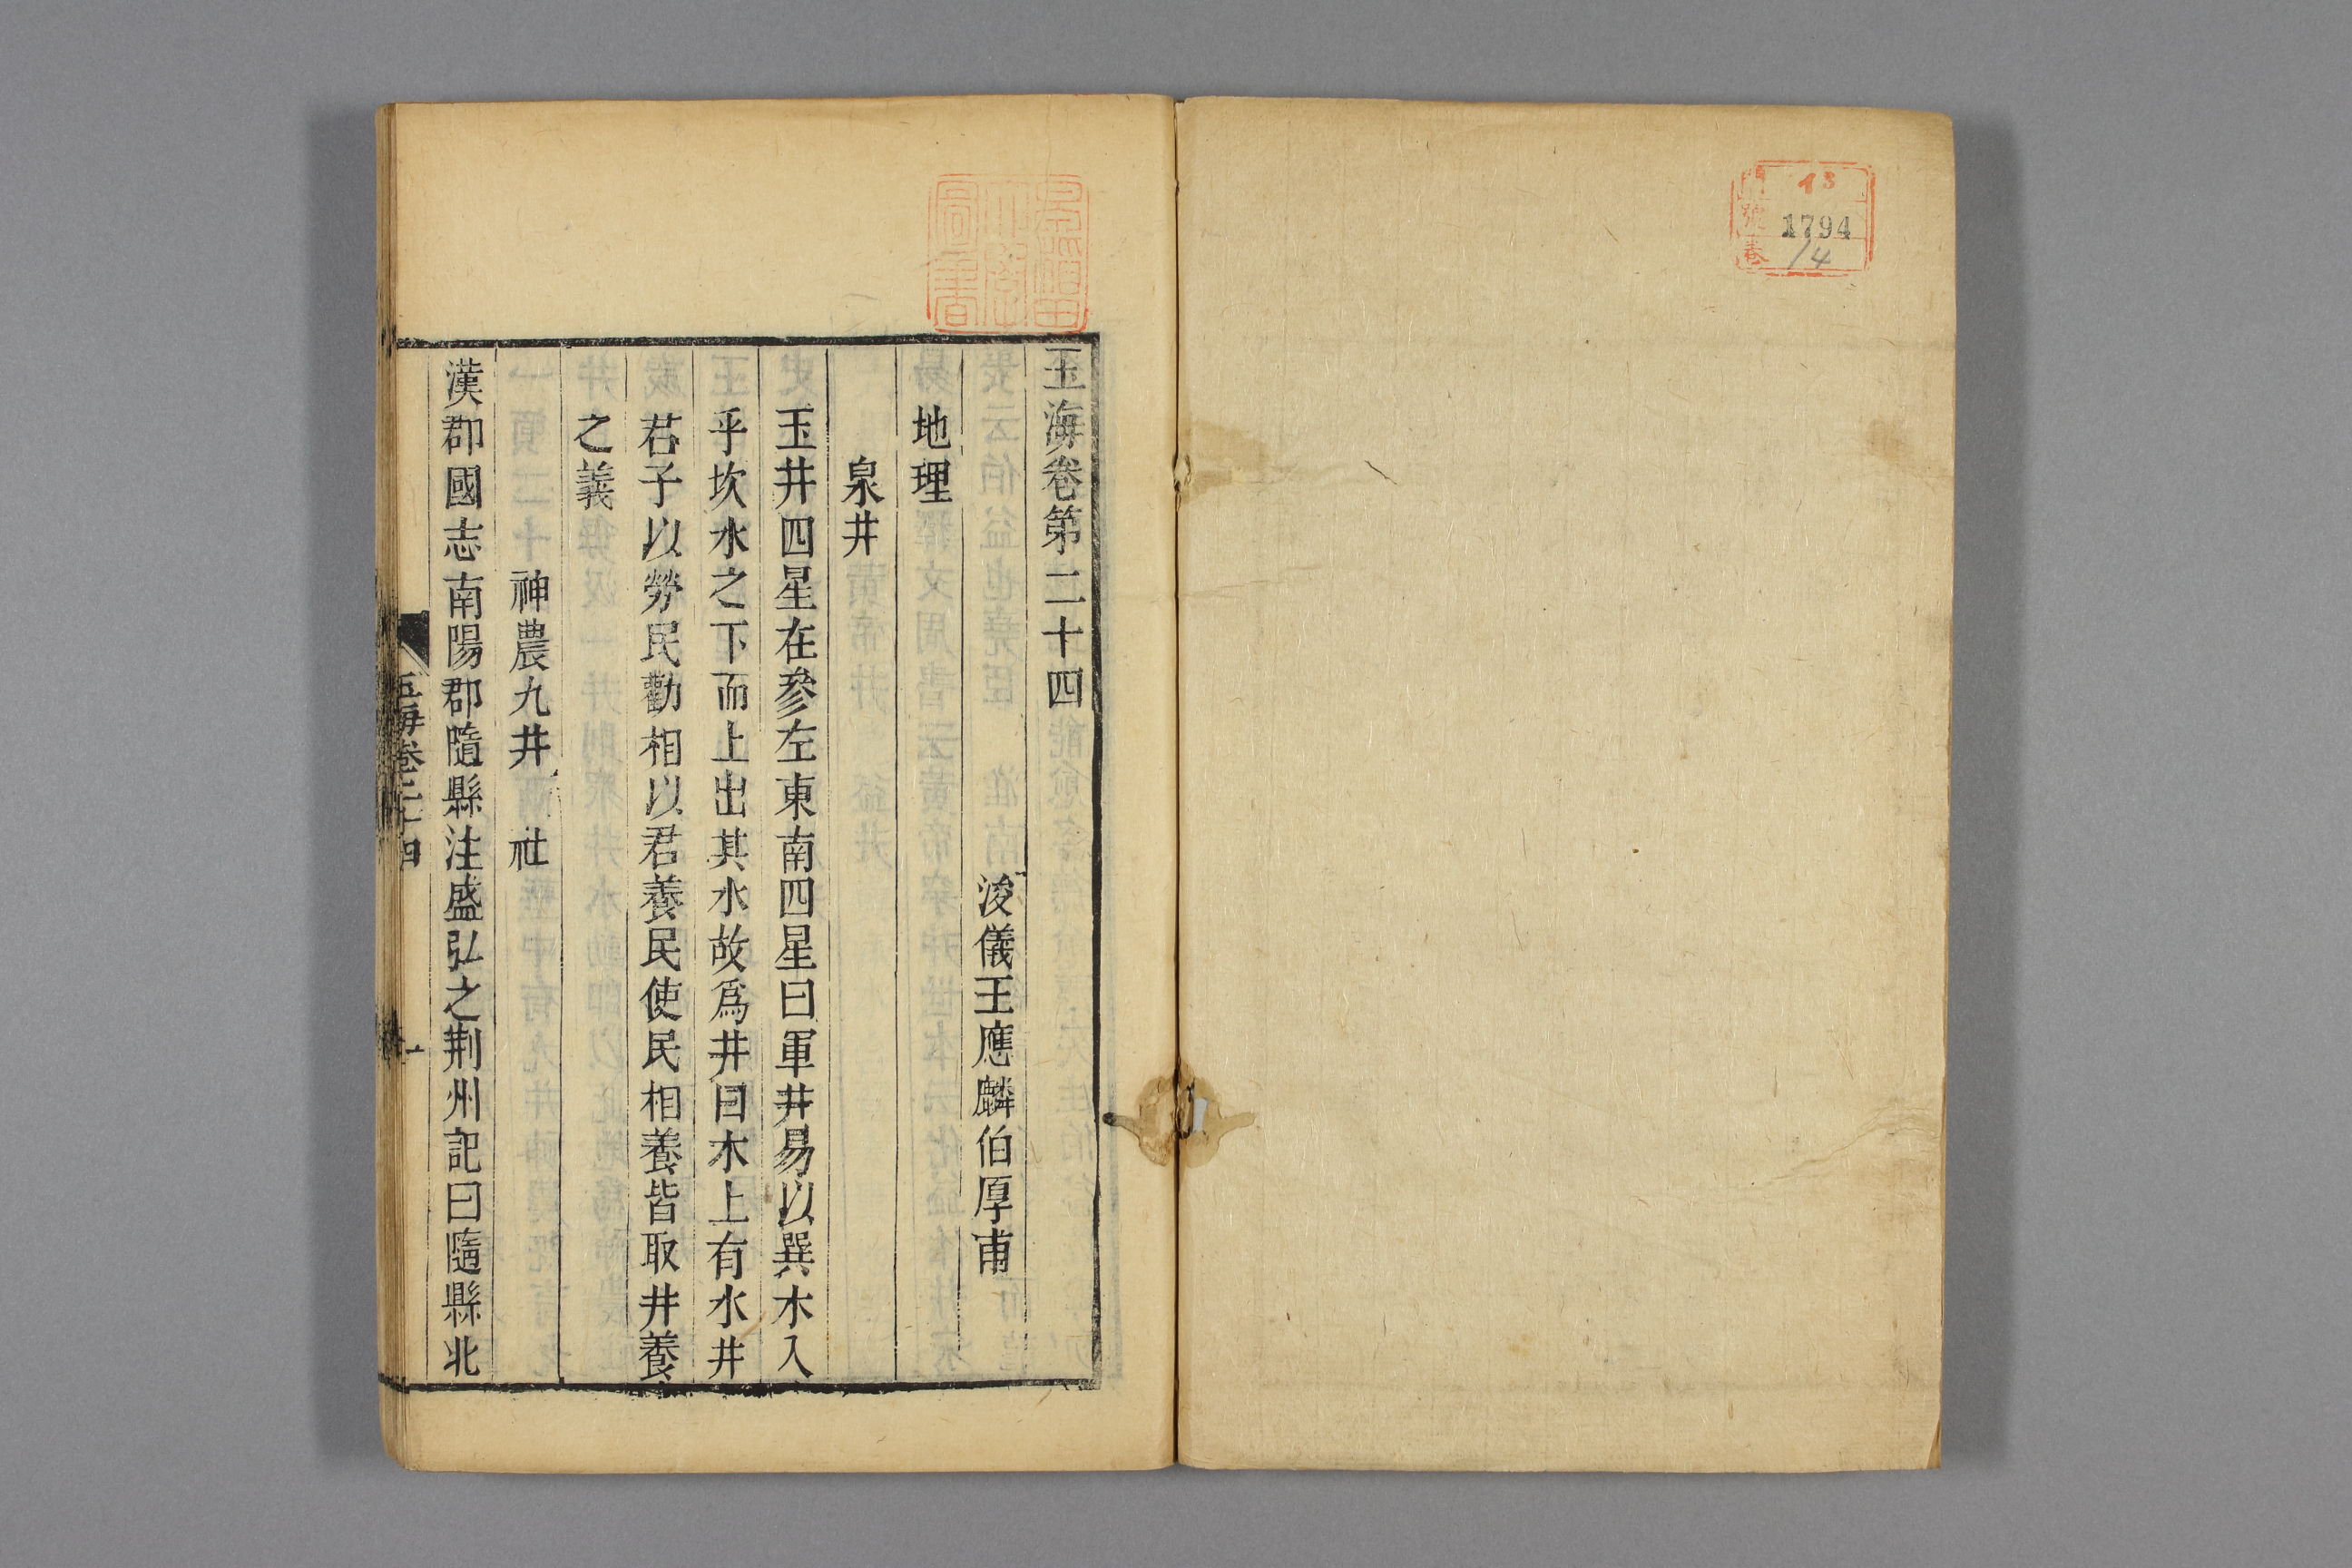 門 13
號 1794
卷 14
早稲田
大學
圖書
玉海卷第二十四
浚儀王應麟伯厚甫
地理
泉井
玉井四星在參左東南四星曰軍井易以巽木入
乎坎水之下而上出其水故爲井曰木上有水井
君子以勞民勸相以君養民使民相養皆取井養
之義
神農九井 社
漢郡國志南陽郡隨縣注盛弘之荆州記曰隨縣北
玉海卷二十四
一